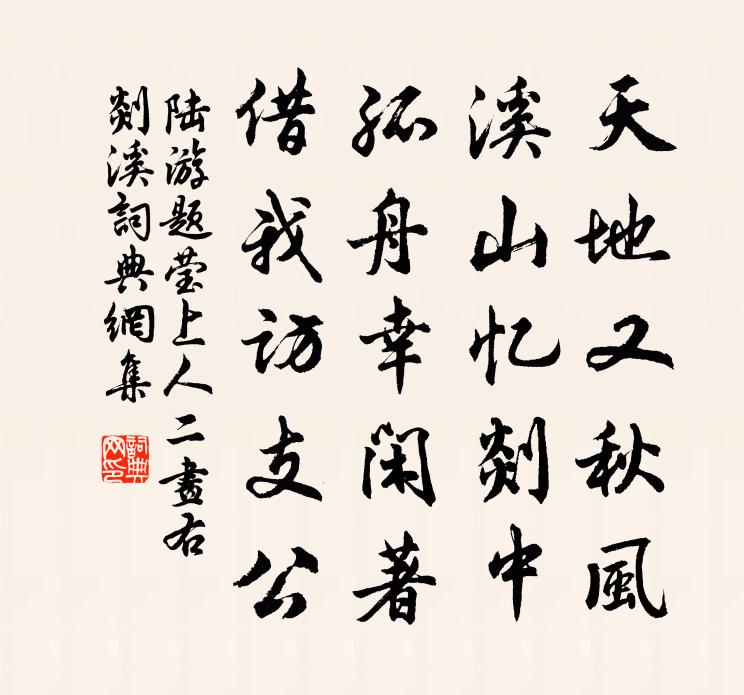 天地又秋風
溪山忆剡中
孤舟幸閑著
借我访支公
陆游题莹上人二畫右
剡溪詞典網集
詞典网印